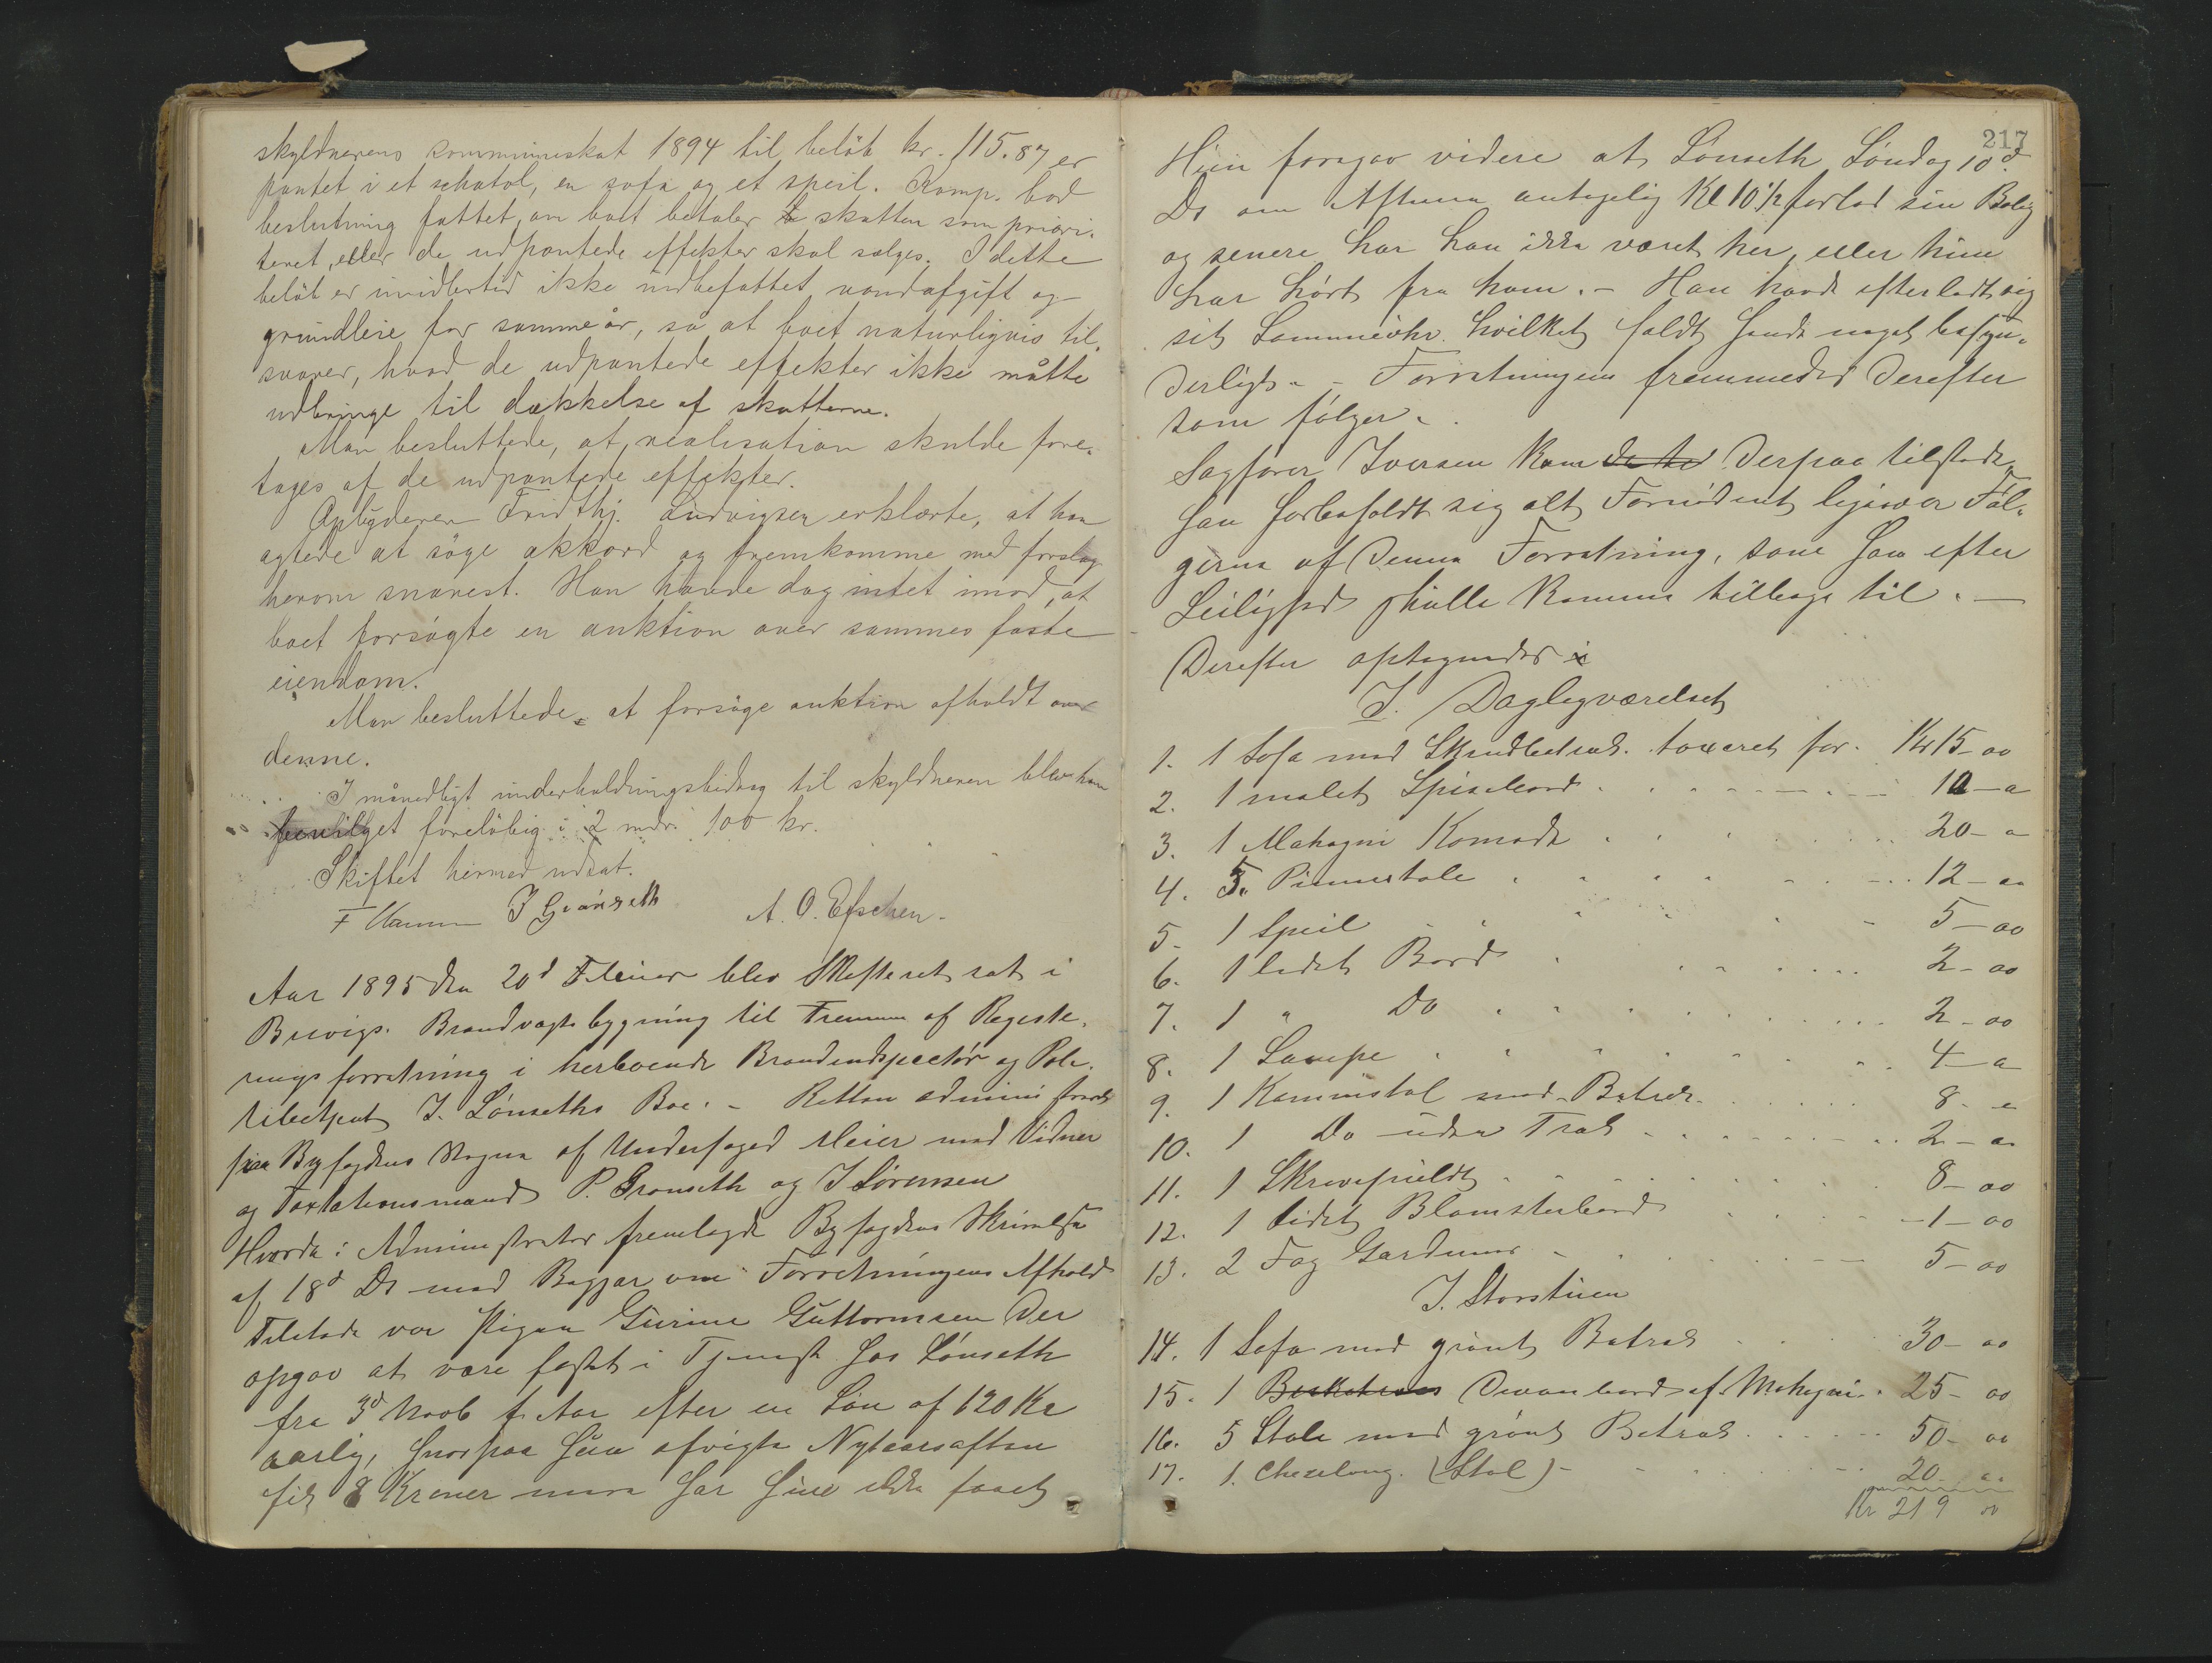 skyldnerens kommuneskat 1894 til beløb kr. 115.87 er
pantet i et schatol, en sofa og et speil. Komp. bad
beslutning fattet, om boet betaler skatten som priori-
teret, eller de udpantede effekter skal sælges. I dette
beløb er imidlertid ikke indbefattet vandafgift og
grundleie for samme år, så at boet naturligvis til-
svarer, hvad de udpantede effekter ikke måtte
udbringe til dækkelse af skatterne.
Man besluttede, at realisation skulde fore-
tages af de udpantede effekter.
Opbyderen Fridthj. Ludvigsen erklærte, at han
agtede at søge akkord og fremkomme med forslag
herom snarest. Han havde dog intet imod, at
boet forsøgte en auktion over sammes faste
eiendom.
Man besluttede at forsøge auktion afholdt over
denne.
I månedligt underholdningsbidrag til skyldneren blev ham
bevilget foreløbig i 2 mdr. 100 kr.
Skiftet hermed udsat.
A. O. Efschen.
Aar 1895 den 20d Februar blev Skifteret sat i
Brevigs Brandvagtsbygning til Fremme af Registe-
ringsforretning i herboende Brandinspectør og Poli-
tibetjent J. Lønseths Boe. - Retten administreret
paa Byfogdens Vegne af Underfoged Meier med Vidner
og Taxtationsmænd P. Grønseth og J Sørensen
Hvorda: Administrator fremlagde Byfogdens Skrivelse
af 18d Ds med Begjær om Forretningens Afhold
Tilstede var Pigen Gurine Guttormsen Der
opgav at være fæstet i Tjeneste hos Lønseth
fra 3d Novb f. Aar efter en Løn af 120 Kr
aarlig, hvorpaa hun afvigte Nytaarsaften
fik 8 Kroner mere har hun ikke faaet
217
Hun foregav videre at Lønseth Søndag 10d
Ds om Aftenen antagelig Kl 10½ forlod sin Bolig
og senere har han ikke været her, eller hun
har hørt fra ham. - Han havde efterladt sig
sit Lommeuhr hvilket faldt hende noget besyn-
derligt. - Forretningen fremmedes derefter
som følger.
Sagfører Iversen kom derpaa tilstede,
han forbeholdt sig alt Fornødent ligeover Føl-
gerne af denne Forretning, som han efter
Leilighed skulle komme tilbage til. -
Derefter optegnedes
I. Dagligværelset
1. 1 Sofa med Skindbetræk taxeret for. Kr 15 - 00
2. 1 malet Spisebord 10 - "
3. 1 Mahogni Komode 20 - "
4. 5 Pinnestole 12 - "
5. 1 Speil 5 - 00
6. 1 lidet Bord 2 - 00
7. 1 " Do 2 - 00
8. 1 Lampe 4 - "
9. 1 Kammstol med Betræk 8 - "
10. 1 Do uden Træk 2 - "
11. 1 Skrivepuldt 8 - 00
12. 1 lidet Blomsterbord 1 - 00
13. 2 Fag Gardiner 5 - 00
I. Storstuen
14. 1 Sofa med grønt Betræk 30 - 00
15. 1 Divanbord af Mahogni. 25 - 00
16. 5 Stole med grønt Betræk 50 - 00
17. 1 Cheselong. (Stol) - 20 "
Kr 219 00